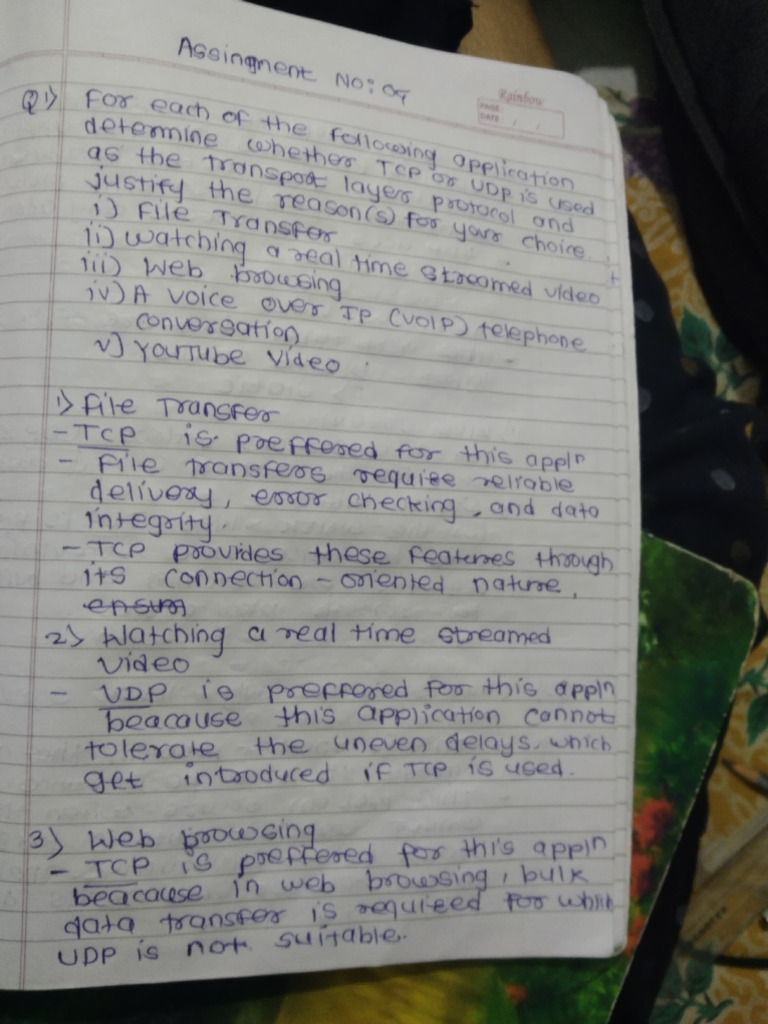 Assingment No: 07
Rainbow
PAGE:
DATE: / /
Q1) For each of the following application
determine whether TCP or UDP is used
as the transpoat layer protocol and
justify the reason(s) for your choice.
i) File Transfer
ii) watching a real time streamed video
iii) Web browsing
iv) A voice over IP (VOIP) telephone
conversation
v) YouTube video
1) File Transfer
- TCP is preffered for this appln
- File transfers require reliable
delivery, error checking, and data
integrity.
- TCP provides these features through
its connection-oriented nature,
ensur
2) Watching a real time streamed
video
- UDP is preffered for this appln
beacause this application cannot
tolerate the uneven delays. which
get introduced if TCP is used.
3) Web browsing
- TCP is preffered for this appln
beacause in web browsing, bulk
data transfer is required for which
UDP is not suitable.